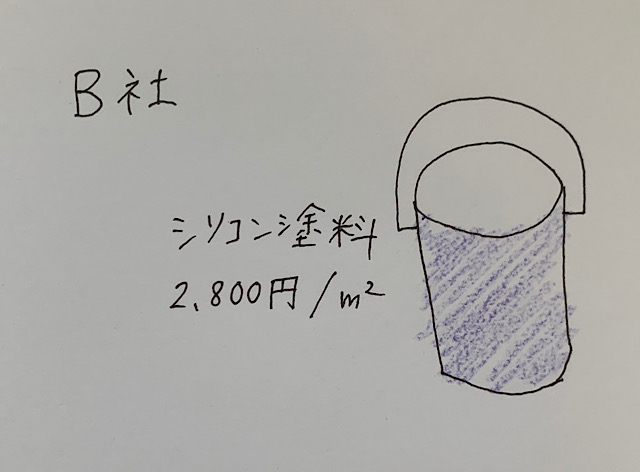 B社
シリコン塗料
2,800円/m²